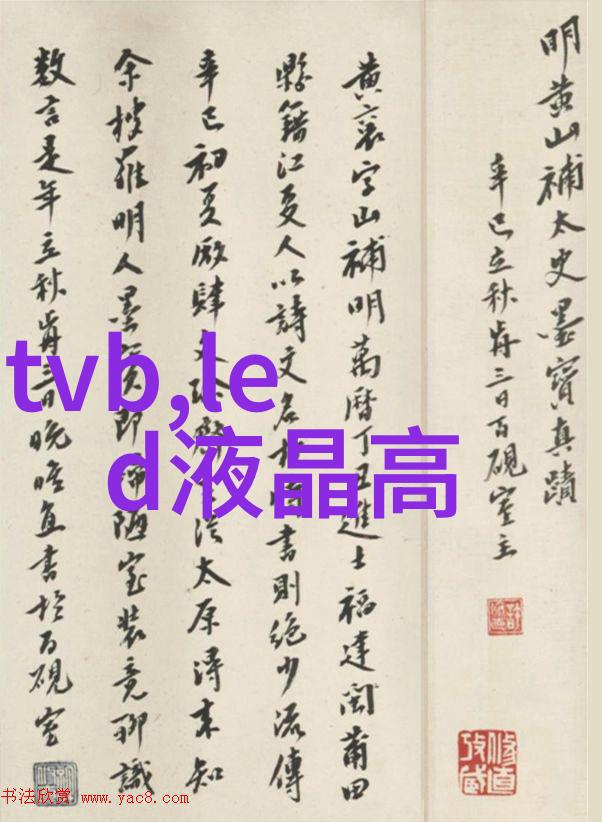 明黄山補太史墨寶真蹟
辛巳立秋前三日百硯室主
黄襄字山補明萬曆丁丑進士福建閩莆田
縣籍江夏人以詩文名於時書則絶少流傳
辛巳初夏厰肆文從太原得来知
余搜羅明人墨即歸陋室装竟聊識
数言是年立秋前三日晚書於百硯室
tvb,le
d液晶高
书法欣赏 www.yac8.com